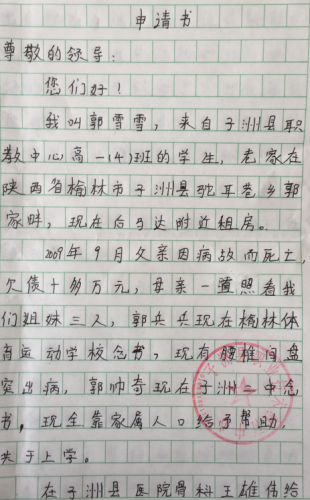 申请书
尊敬的领导：
您们好！
我叫郭雪雪，来自子洲县职
教中心高一(4)班的学生，老家在
陕西省榆林市子洲县驼耳巷乡郭
家畔，现在后马达附近租房。
2009年9月父亲因病故而死亡，
欠债十多万元，母亲一直照看我
们姐妹三人，郭兵兵现在榆林体
育运动学校念书，现有腰椎间盘
突出病，郭帅奇现在子洲二中念
书。现全靠家属人口给予帮助，
失于上学。
在子洲县医院骨科王雄伟给